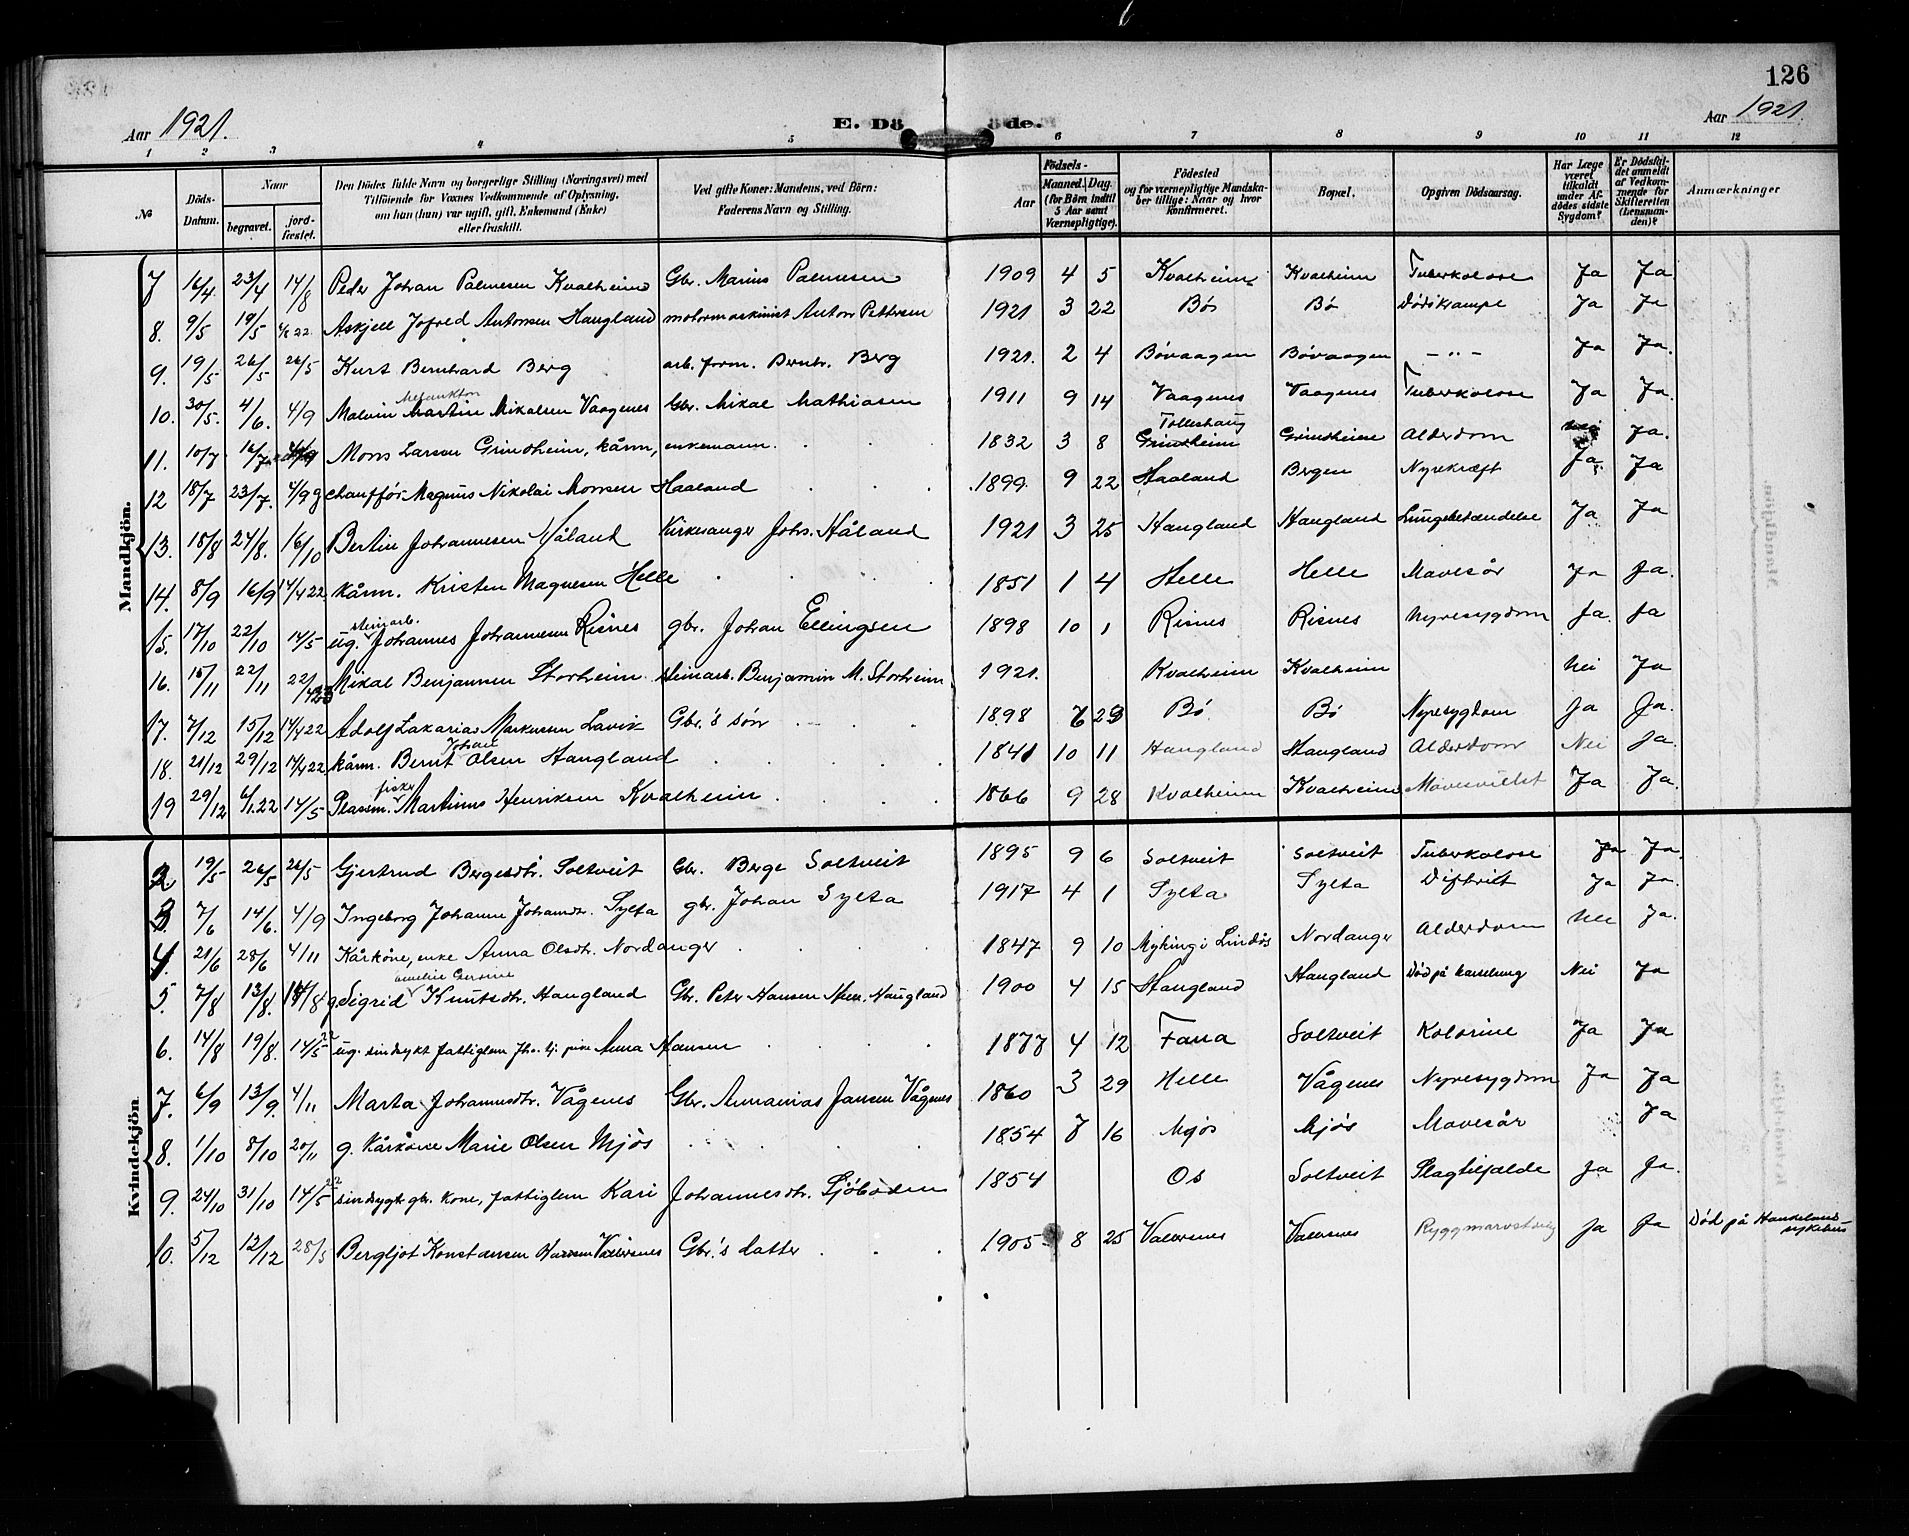 126
Aar 1921. E. Dö de. Aar 1921.
1 2 3 4 5 6 7 8 9 10 11 12
№ | Döds-Datum. | Naar begravet. | jord-fæstet. | Den Dödes fulde Navn og borgerlige Stilling (Næringsvei) med Tilföiende for Voxnes Vedkommende af Oplysning, om han (hun) var ugift, gift, Enkemand (Enke) eller fraskilt. | Ved gifte Koner: Mandens, ved Börn: Faderens Navn og Stilling. | Födsels- Aar | Maaned. Dag. (for Börn indtil 5 Aar samt Værnepligtige). | Födested og for værnepligtige Mandskaber tillige: Naar og hvor konfirmeret. | Bopæl. | Opgiven Dödsaarsag. | Har Læge været tilkaldt under Afdödes sidste Sygdom? | Er Dödsfaldet anmeldt af Vedkommende for Skifteretten (Lensmanden)? | Anmærkninger
Mandkjön.
7 16/4 23/4 14/8 Peder Johan Palmesen Kvalheim Gbr. Marius Palmesen 1909 4 5 Kvalheim Kvalheim Tuberkolose Ja Ja
8. 9/5 19/5 22 Askjell Jofred Antonsen Haugland motormaskinist Anton Pettersen 1921 3 22 Bö Bö Dödskrampe Ja Ja
9. 19/5 26/5 26/5 Kurt Bernhard Berg arb. form. Bernh. Berg 1921. 2 4 Bövaagen Bövaagen — " — Ja Ja.
10. 30/5. 4/6. 4/9 Malvin Martin Melankton Mikalsen Vaagenes Gbr. Mikal Mathiasen 1911 9 14 Vaagenes Vaagenes Tuberkolose Ja Ja.
11. 10/7 16/7 Mons Larsen Grindheim, kårm, enkemann. 1832 3 8 Grindheim Grindheim Alderdom Ja.
12 18/7 23/7. 4/9 chaufför Magnus Nikolai Monsen Haaland 1899. 9 22 Haaland Bergen Nyrekræft Ja. Ja
13. 18/8 24/8. 16/10 Bertin Johannesen Håland Kirkesanger Johs. Håland 1921 3 25 Haugland Haugland Lungebetændelse Ja Ja
14. 8/9 16/9 17/4 22. kårm. Kristen Magnesen Helle 1851 1 4 Helle Helle Mavesår Ja Ja.
15. 17/10 22/10 14/5 ug. steinarb. Johannes Johannesen Risnes gbr. Johan Ellingsen 1898 10 1 Risnes Risnes Nyresygdom Ja. Ja
16. 15/11 22/11 22/4 23 Mikal Benjamsen Storheim steinarb. Benjamin M. Storheim 1921. Kvalheim Kvalheim Nei Ja
17. 7/12 15/12 17/4 22 Adolf Zakarias Markusen Lavik Gbr.'s sön 1898 29 Bö Bö Nyresygdom Ja Ja.
18. 21/12 29/12 17/4 22. kårm. Bernt Johan Olsen Haugland 1841 10 11 Haugland Haugland Alderdom Nei Ja.
19 29/12 6/1. 22 14/5 Plassm. fisker Martinus Henriksen Kvalheim 1866 9 28 Kvalheim Kvalheim Ja Ja.
Kvindekjön
2. 19/5 26/5 26/5 Gjertrud Bergesdtr. Soltveit Gbr. Berge Soltveit 1895 9 6 Soltveit Soltveit Tuberkolose Ja Ja.
3. 7/6 14/6. 4/9 Ingeborg Johanne Johansdtr. Sylta gbr. Johan Sylta 1917 4 1 Sylta Sylta Diftrit Ja Ja.
4. 21/6 28/6 4/11 Kårkone, enke Anna Olsdtr. Nordanger 1847 9 10 Myking i Lindås Nordanger Alderdom Nei Ja.
5. 7/8 13/8. 14/8 g. Sigrid Knutsdtr. Haugland Gbr. Peter Hansen Haugland 1900 4 15 Haugland Haugland Död på barselseng Nei Ja
6. 14/8 19/8. 14/5 22 ug. sindsykt fattiglem tj. pike Anna Hansen 1877 4 12 Fana Soltveit Kolerine Ja Ja
7. 6/9 13/9. 4/11 Marta Johannesdtr. Vågenes Gbr. Annanias Jansen Vågenes 1860 3 29 Helle Vågenes Nyresygdom Ja Ja
8. 1/10 8/10 20/11 g. kårkone Marie Olsen Mjös 1854 7 16 Mjös Mjös Mavesår Ja
9. 24/10 31/10 14/5 22 sindsygt gbr. kone, fattiglem Kari Johannesdtr. Sjöboden 1854 Os Soltveit Slagtilfælde Ja Ja.
10. 5/12 12/12 28/5 Bergljot Konstansen Hansen Valersnes Gbr.'s datter 1905 8 25 Valersnes Valersnes Ja Ja Död på Haukeland sykehus